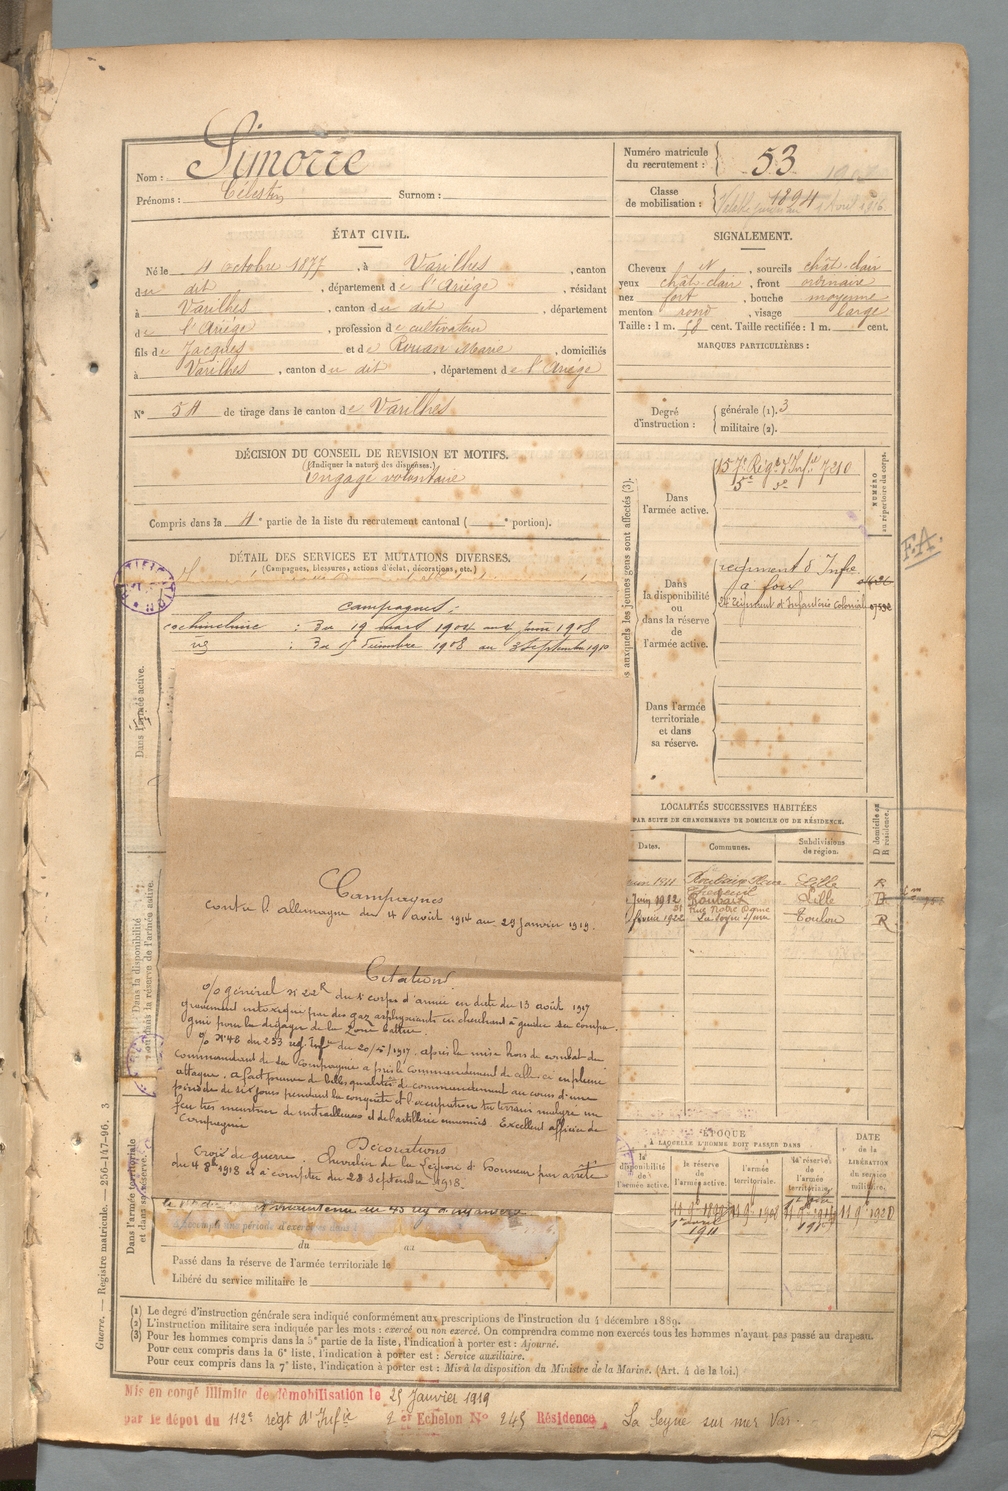 Nom : Simorre
Prénoms : Célestin Surnom :
Numéro matricule du recrutement : 53
Classe de mobilisation : 1894
ÉTAT CIVIL.
Né le 4 octobre 1877, à Varilhes, canton
du dit, département de l'Ariège, résidant
à Varilhes, canton du dit, département
de l'Ariège, profession de cultivateur
fils de Jacques et de Rouan Marie, domiciliés
à Varilhes, canton du dit, département de l'Ariège
N° 54 de tirage dans le canton de Varilhes
SIGNALEMENT.
Cheveux N, sourcils chât. clair
yeux chât. clair, front ordinaire
nez fort, bouche moyenne
menton rond, visage large
Taille : 1 m. 58 cent. Taille rectifiée : 1 m. cent.
MARQUES PARTICULIÈRES :
Degré d'instruction : générale (1). 3
militaire (2).
DÉCISION DU CONSEIL DE REVISION ET MOTIFS.
(Indiquer la nature des dispenses.)
Engagé volontaire
Compris dans la 4e partie de la liste du recrutement cantonal ( e portion).
DÉTAIL DES SERVICES ET MUTATIONS DIVERSES.
(Campagnes, blessures, actions d'éclat, décorations, etc.)
Campagnes :
Cochinchine : Du 19 mars 1904 au 4 juin 1908
: Du 15 décembre 1908 au 3 septembre 1910
Campagnes
contre l'allemagne du 4 août 1914 au 29 Janvier 1919.
Citations
O/ général N 22 du 1er corps d'armée en date du 13 août 1917
gravement intoxiqué par des gaz asphyxiants en cherchant à guider sa compa-
gnie pour la dégager de la Zone battue.
O/ N°48 du 253 reg. Inf. du 20/5/1917. après la mise hors de combat du
commandant de sa compagnie a pris le commandement de celle-ci en pleine
attaque. a fait preuve de belles qualités de commandement au cours d'une
période de six jours pendant la conquête et l'occupation du terrain malgré un
feu très meurtrier de mitrailleuses et de l'artillerie ennemies. Excellent officier de
compagnie
Décorations
Croix de guerre. Chevalier de la Légion d'honneur par arrêté
du 4 8bre 1918 et à compter du 28 septembre 1918.
Dans l'armée active.
Dans la disponibilité ou dans la réserve de l'armée active.
Dans l'armée territoriale et dans sa réserve.
du au
Passé dans la réserve de l'armée territoriale le
Libéré du service militaire le
s auxquels les jeunes gens sont affectés (3).
NUMÉRO au répertoire du corps.
Dans l'armée active.
157e Régt d'Infie 7210
5e do
Dans la disponibilité ou dans la réserve de l'armée active.
régiment d'Infie
à Foix
régiment d'Infanterie Coloniale
Dans l'armée territoriale et dans sa réserve.
F.A.
LOCALITÉS SUCCESSIVES HABITÉES
PAR SUITE DE CHANGEMENTS DE DOMICILE OU DE RÉSIDENCE.
Dates. Communes. Subdivisions de région. D domicile ou R résidence.
1911 Roubaix Lille R
Juin 1912 Roubaix Lille D
février 1922 La Seyne s/mer Toulon R
ÉPOQUE
À LAQUELLE L'HOMME DOIT PASSER DANS
la disponibilité de l'armée active. la réserve de l'armée active. l'armée territoriale. la réserve de l'armée territoriale.
DATE de la LIBÉRATION du service militaire.
1er avril 1911
(1) Le degré d'instruction générale sera indiqué conformément aux prescriptions de l'Instruction du 4 décembre 1889.
(2) L'instruction militaire sera indiquée par les mots : exercé ou non exercé. On comprendra comme non exercés tous les hommes n'ayant pas passé au drapeau.
(3) Pour les hommes compris dans la 5e partie de la liste, l'indication à porter est : Ajourné.
Pour ceux compris dans la 6e liste, l'indication à porter est : Service auxiliaire.
Pour ceux compris dans la 7e liste, l'indication à porter est : Mis à la disposition du Ministre de la Marine. (Art. 4 de la loi.)
Guerre. — Registre matricule. — 256-147-96. 3
Mis en congé illimité de démobilisation le 25 Janvier 1919
par le dépôt du 112e régt d'Infie 2 er Echelon N° 245 Résidence La Seyne sur mer Var.